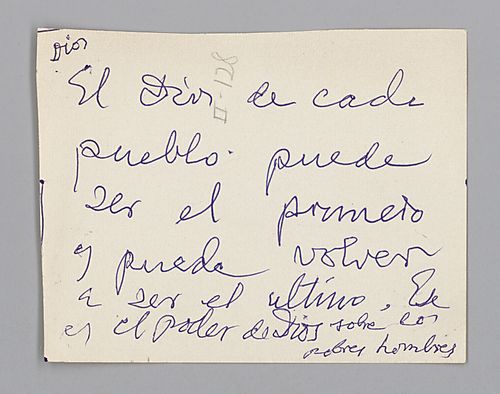 Dios
II-128
El Dios de cada
pueblo puede
ser el primero
y puede volver
a ser el ultimo. Ese
es el poder de Dios sobre los
pobres hombres